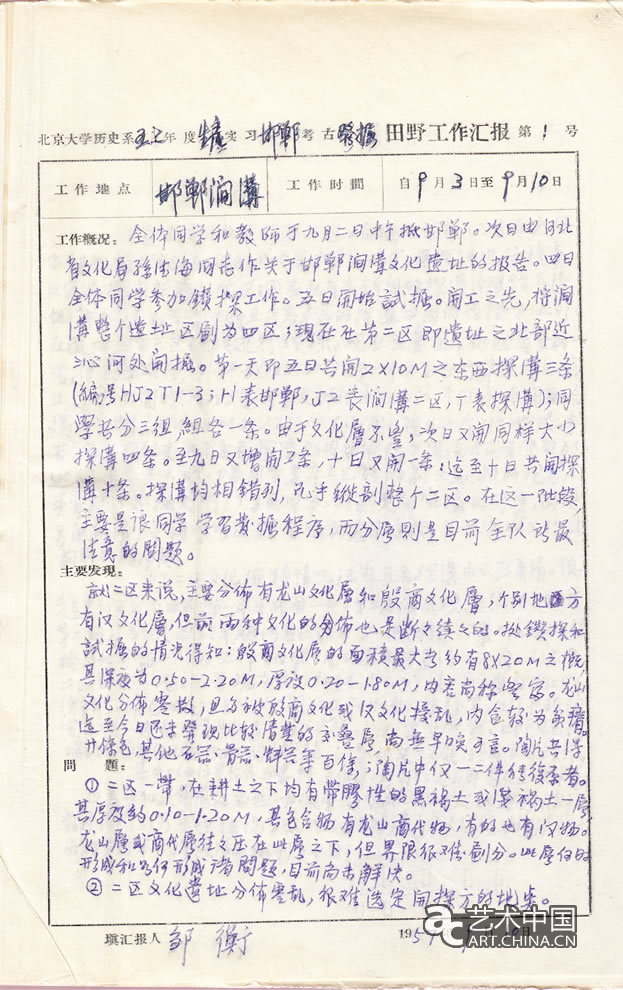 北京大学历史系五七年度生产实习邯郸考古發掘田野工作汇报第1号
工作地点 邯郸澗溝 工作时間 自9月3日至9月10日
工作概况：全体同学和教师于九月二日中午抵邯郸。次日由河北
省文化局孫德海同志作关于邯郸澗溝文化遺址的报告。四日
全体同学参加鑽探工作。五日開始試掘。開工之先，將澗
溝整个遺址区劃为四区；現在在第二区即遺址之北部近
沁河处開掘。第一天即五日共開2×10M之东西探溝三条
(編号HJ2T1-3；H表邯郸，J2表澗溝二区，T表探溝)；同
學共分三組，組各一条。由于文化層不豐，次日又開同样大小
探溝四条。至九日又增開2条，十日又開一条；迄至十日共開探
溝十条。探溝均相錯列，几乎縱剖整个二区。在这一阶段，
主要是讓同学学習發掘程序，而分層則是目前全队所最
注意的問題。
主要发現：
就二区来說，主要分佈有龙山文化層和殷商文化層，个别地方
有汉文化層，但前两种文化的分佈也是断々續々的。據鑽探和
試掘的情况得知：殷商文化層的面積最大者約有8×20M之概，
其深度为0.50-2.20M，厚度0.20-1.80M，内容尚称豐富。龙山
文化分佈零散，且多被殷商文化或汉文化擾乱，内含較为貧瘠。
迄至今日还未發現比較清楚的交疊層，尚無早晚可言。陶片共得
廿余包，其他石器、骨器、蚌器等百余件；陶片中仅一二件能復原者。
問題：
①二区一帶，在耕土之下均有帶膠性的黑褐土或黄褐土一層，
其厚度約0.10-1.20M，其包含物有龙山商代物，有的也有汉物。
龙山層或商代層往々压在此層之下，但界限很难劃分。此層何时
形成和如何形成諸問題，目前尚未解决。
②二区文化遺址分佈零乱，很难选定開探方的地点。
填汇报人 邹衡 195 月10日
艺术中国
ART.CHINA.CN